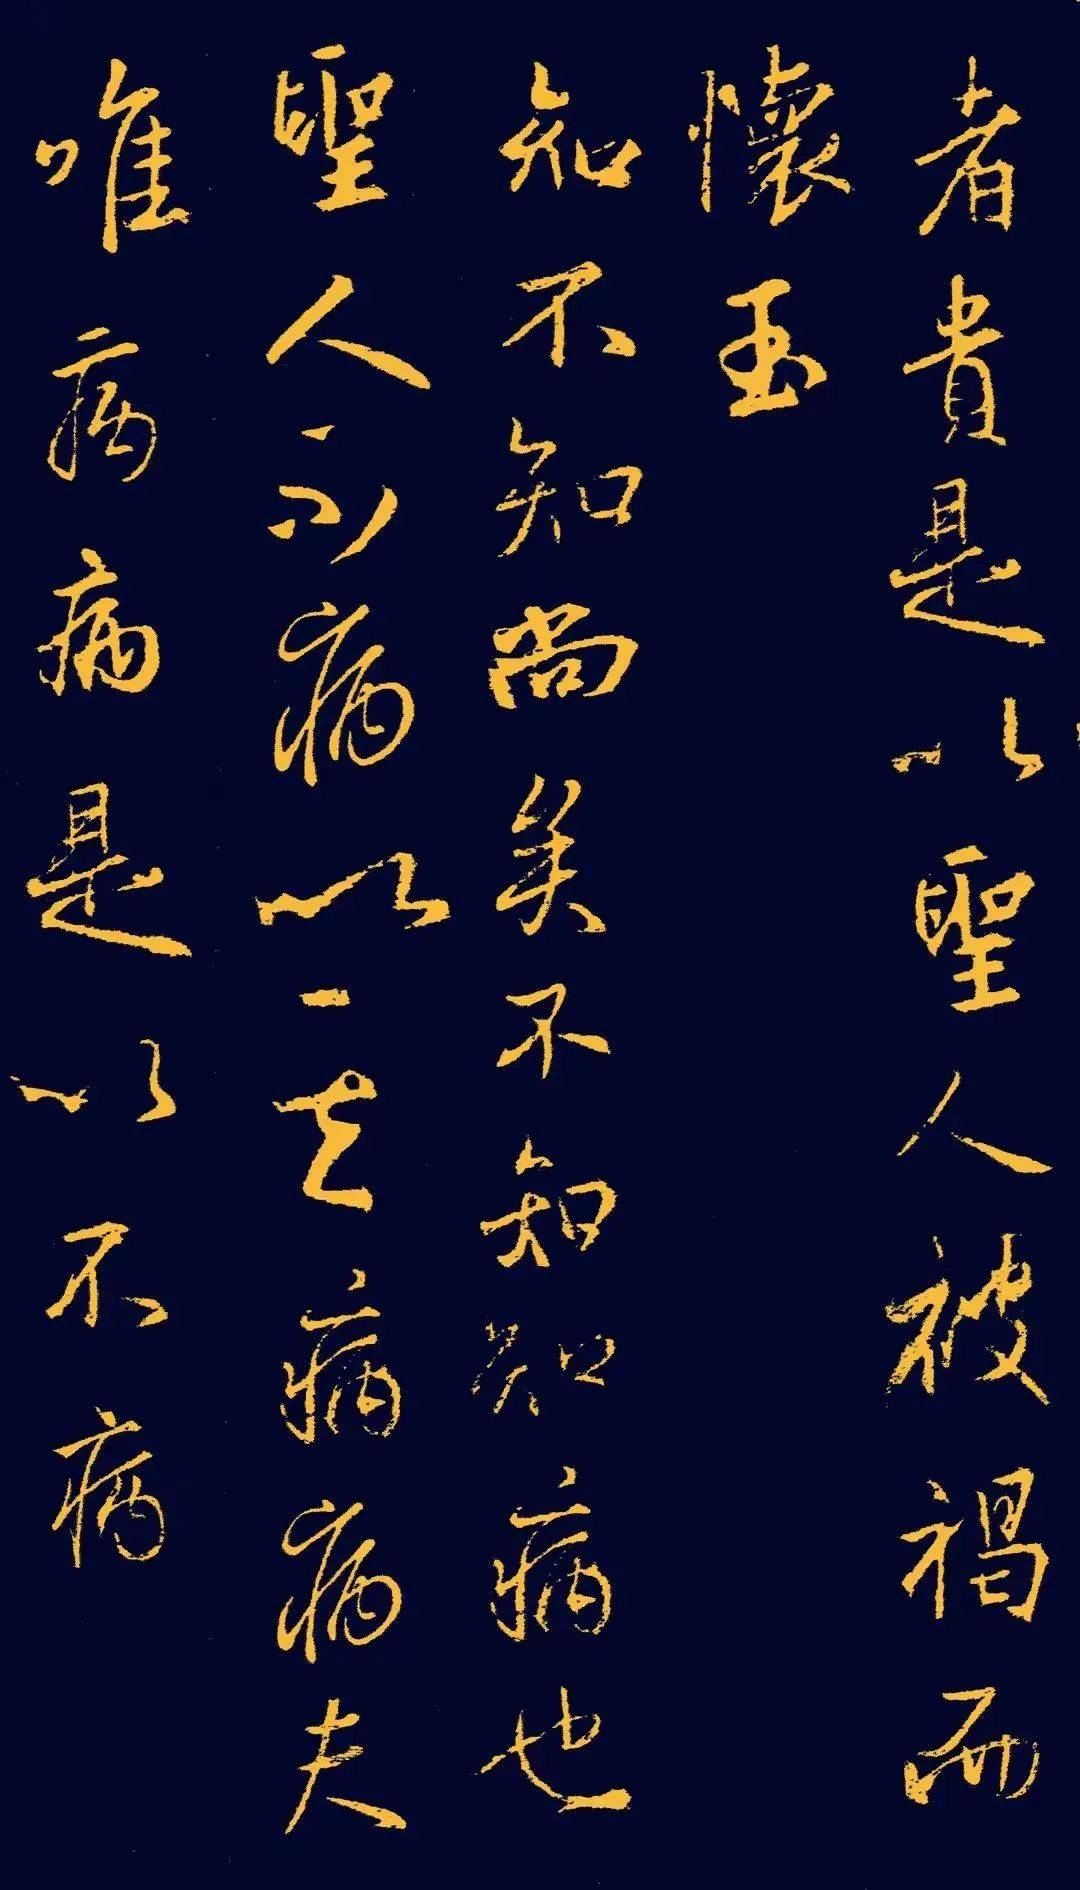 者貴是以聖人被褐而
懷玉
知不知尚矣不知知病也
聖人不病以其病病夫
唯病病是以不病